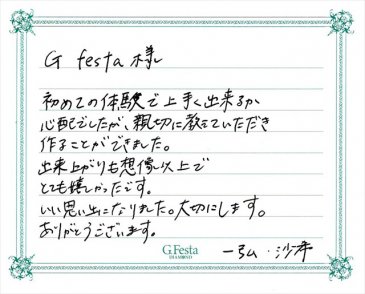 G festa 様
初めての体験で上手く出来るか
心配でしたが、親切に教えていただき
作ることができました。
出来上がりも想像以上で
とても嬉しかったです。
いい思い出になりました。大切にします。
ありがとうございます。
一弘・沙希
G.Festa
DIAMOND